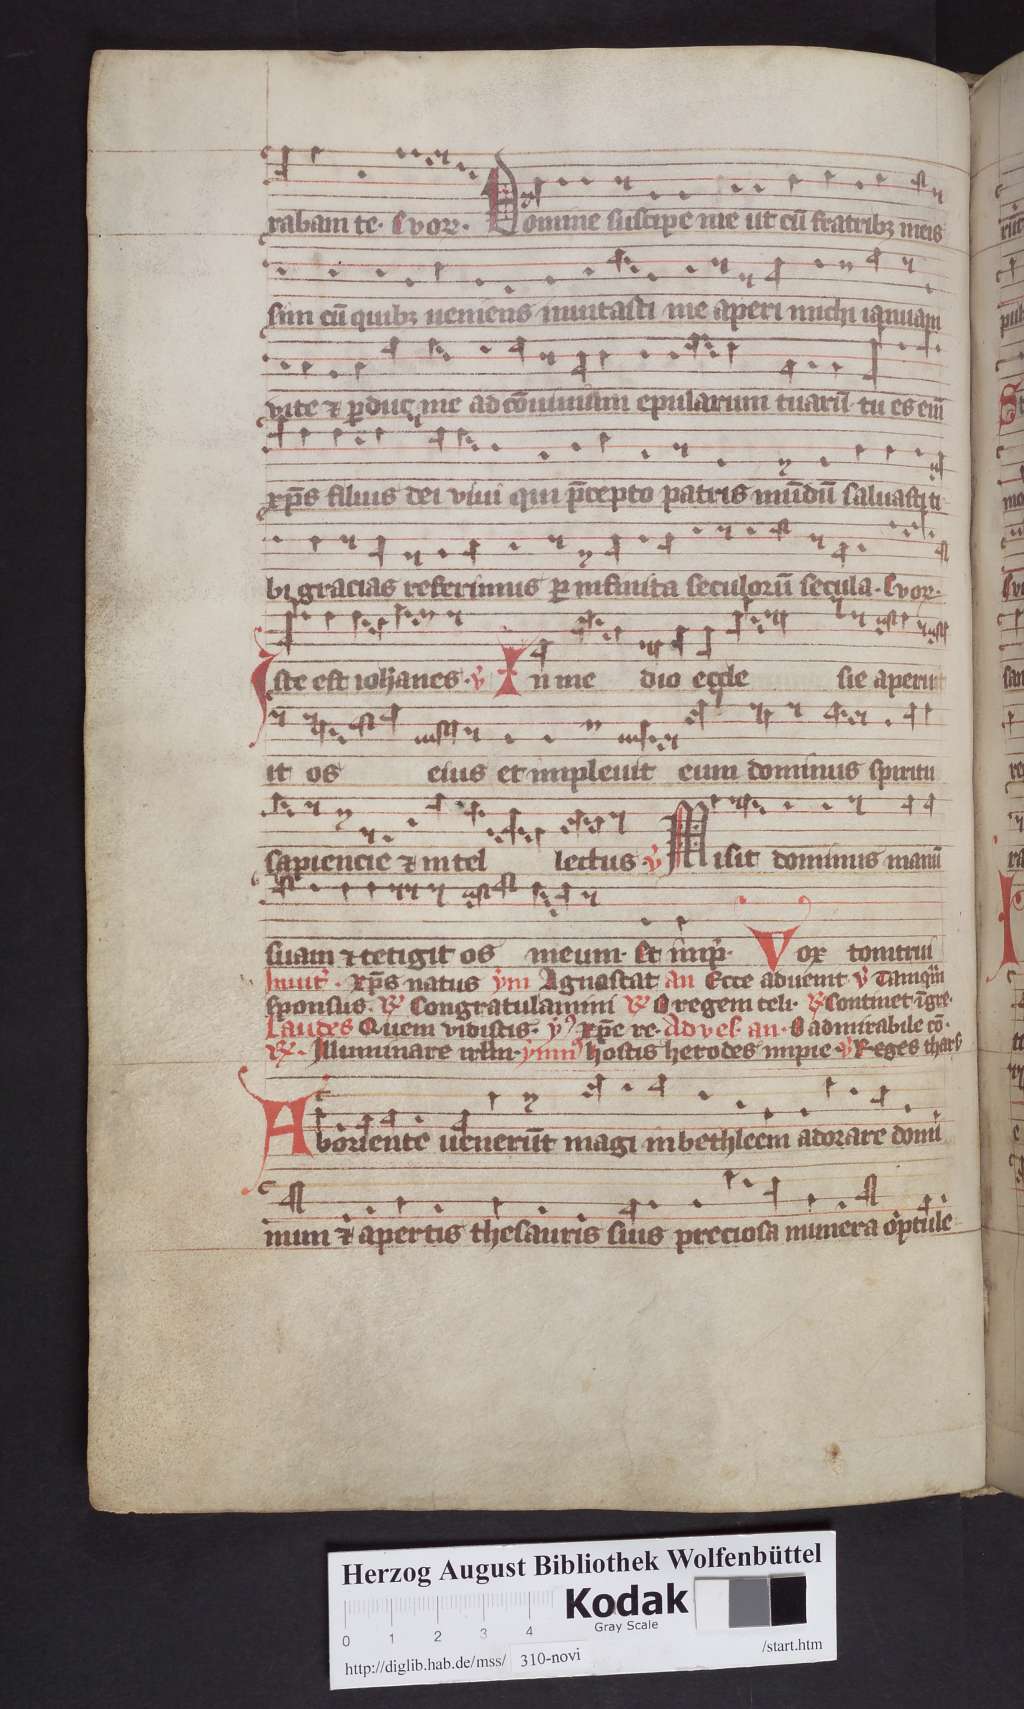 rabam te. Evovae. Domine suscipe me ut cū fratribꝫ meis
sim cū quibꝫ veniens invitasti me aperi michi ianuam
vite ⁊ ꝑduc me ad cōvivium epularum tuarū tu es eni̅
xp̄s filius dei vivi qui p̄cepto patris mūdū salvasti ti
bi gracias referimus ꝑ infinita seculorū secula. Evovae.
Iste est iohanes. v̓ In me dio eccle sie aperu
it os eius et implevit eum dominus spiritu
sapiencie ⁊ intel lectus v̓ Misit dominus manū
suam ⁊ tetigit os meum. Et imp̄. Vox tonitrui
Invit̓. xp̄s natus ym̄ Agnoscat an Ecce advenit v̓ Tamqͣm
sponsus. ℟ Congratulamini ℟ O regem celi. ℟ Continet ī gre.
Laudes Quem vidistis. yꝰ xp̄e re. Ad ves. an. O admirabile cō.
℟. Illuminare irl̄m. ymnꝰ hostis herodes impie v̓ Reges thars
Ab oriente venerūt magi in bethleem adorare domi
num ⁊ apertis thesauris suis preciosa munera optule
Herzog August Bibliothek Wolfenbüttel
Kodak
Gray Scale
0 1 2 3 4
http://diglib.hab.de/mss/ 310-novi /start.htm